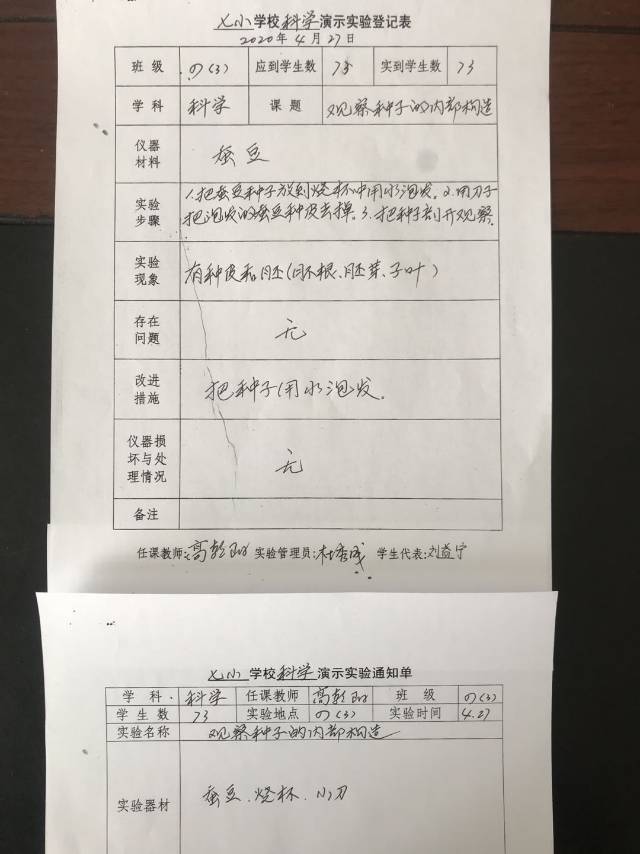 七小学校科学演示实验登记表
2020年4月27日
班级 四(3) 应到学生数 73 实到学生数 73
学科 科学 课题 观察种子的内部构造
仪器材料 蚕豆
实验步骤 1.把蚕豆种子放到烧杯中用水泡发。2.用刀子
把泡发的蚕豆种皮去掉。3.把种子剖开观察.
实验现象 有种皮和胚(胚根、胚芽、子叶)
存在问题 无
改进措施 把种子用水泡发.
仪器损坏与处理情况 无
备注
任课教师: 实验管理员: 学生代表:刘益宁
七小学校科学演示实验通知单
学科 科学 任课教师 班级 四(3)
学生数 73 实验地点 四(3) 实验时间 4.27
实验名称 观察种子的内部构造
实验器材 蚕豆、烧杯、小刀